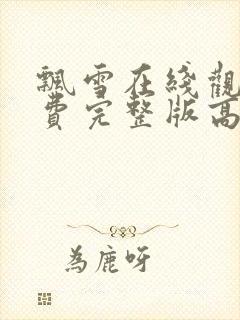 飄雪在綫觀
費完整版高
為鹿呀